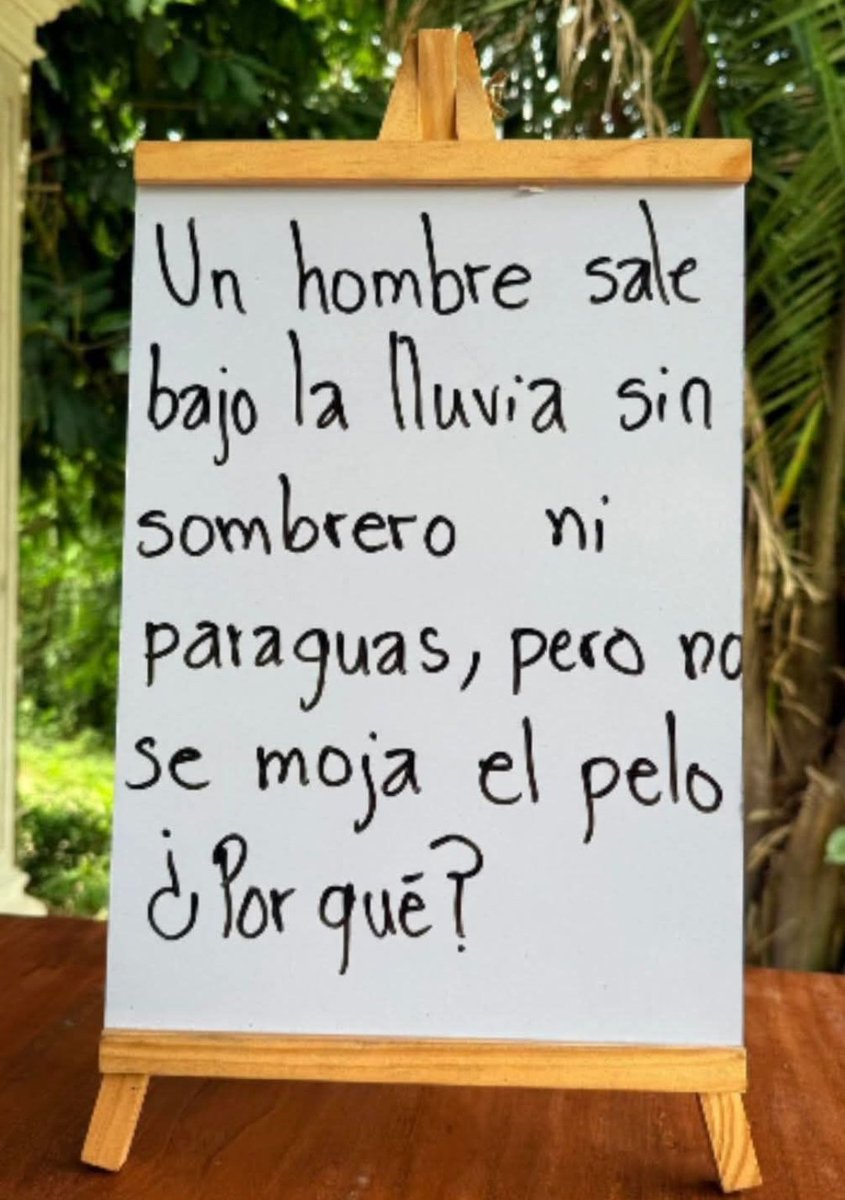 Un hombre sale
bajo la lluvia sin
sombrero ni
paraguas, pero no
se moja el pelo
¿Por qué?